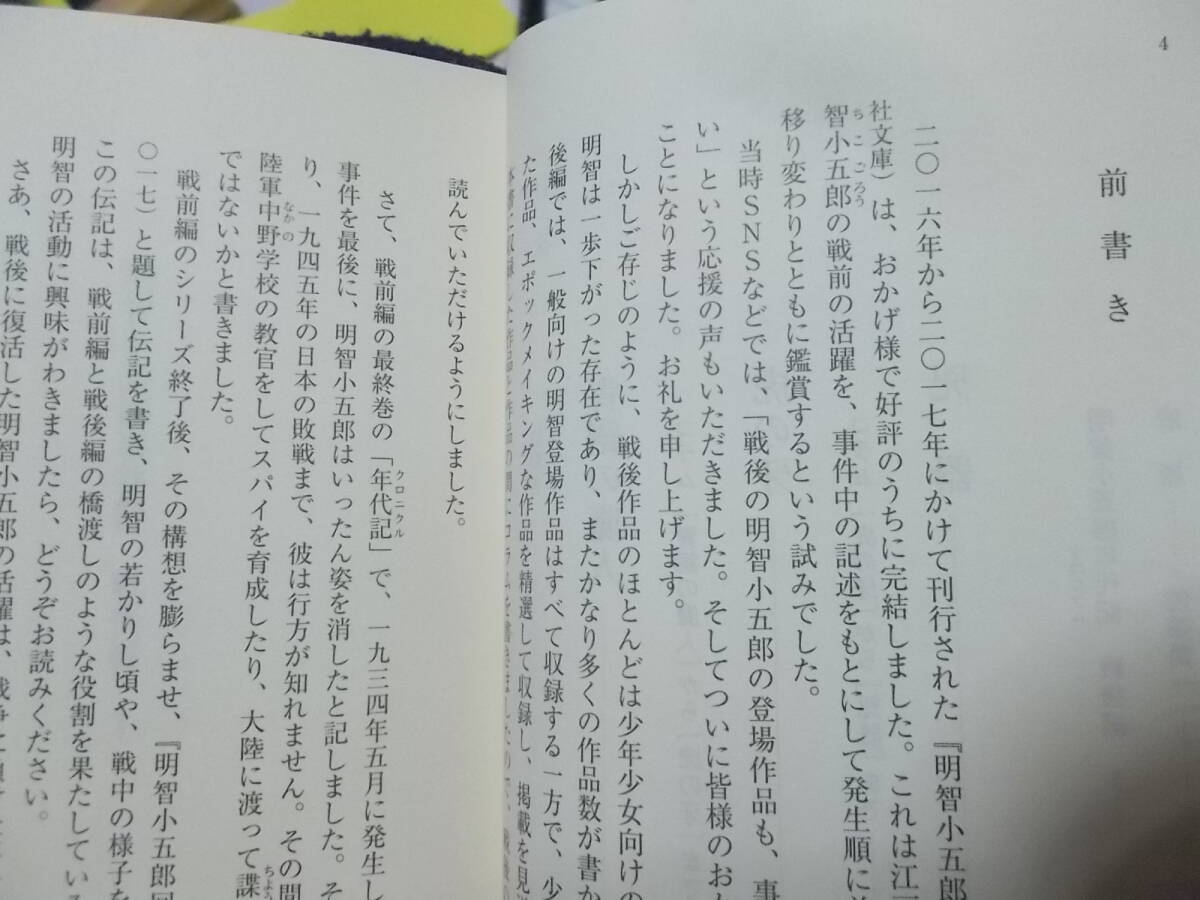 4
前書き
二〇一六年から二〇一七年にかけて刊行された『明智小五郎
社文庫）は、おかげ様で好評のうちに完結しました。これは江
智小五郎の戦前の活躍を、事件中の記述をもとにして発生順に
移り変わりとともに鑑賞するという試みでした。
当時ＳＮＳなどでは、「戦後の明智小五郎の登場作品も、事
い」という応援の声もいただきました。そしてついに皆様のおか
ことになりました。お礼を申し上げます。
しかしご存じのように、戦後作品のほとんどは少年少女向けの
明智は一歩下がった存在であり、またかなり多くの作品数が書か
後編では、一般向けの明智登場作品はすべて収録する一方で、少
た作品、エポックメイキングな作品を精選して収録し、掲載を見
読んでいただけるようにしました。
さて、戦前編の最終巻の「年代記」で、一九三四年五月に発生し
事件を最後に、明智小五郎はいったん姿を消したと記しました。そ
り、一九四五年の日本の敗戦まで、彼は行方が知れません。その間
陸軍中野学校の教官をしてスパイを育成したり、大陸に渡って諜
ではないかと書きました。
戦前編のシリーズ終了後、その構想を膨らませ、『明智小五郎回
〇一七）と題して伝記を書き、明智の若かりし頃や、戦中の様子を
この伝記は、戦前編と戦後編の橋渡しのような役割を果たしている
明智の活動に興味がわきましたら、どうぞお読みください。
さあ、戦後に復活した明智小五郎の活躍は、戦争に